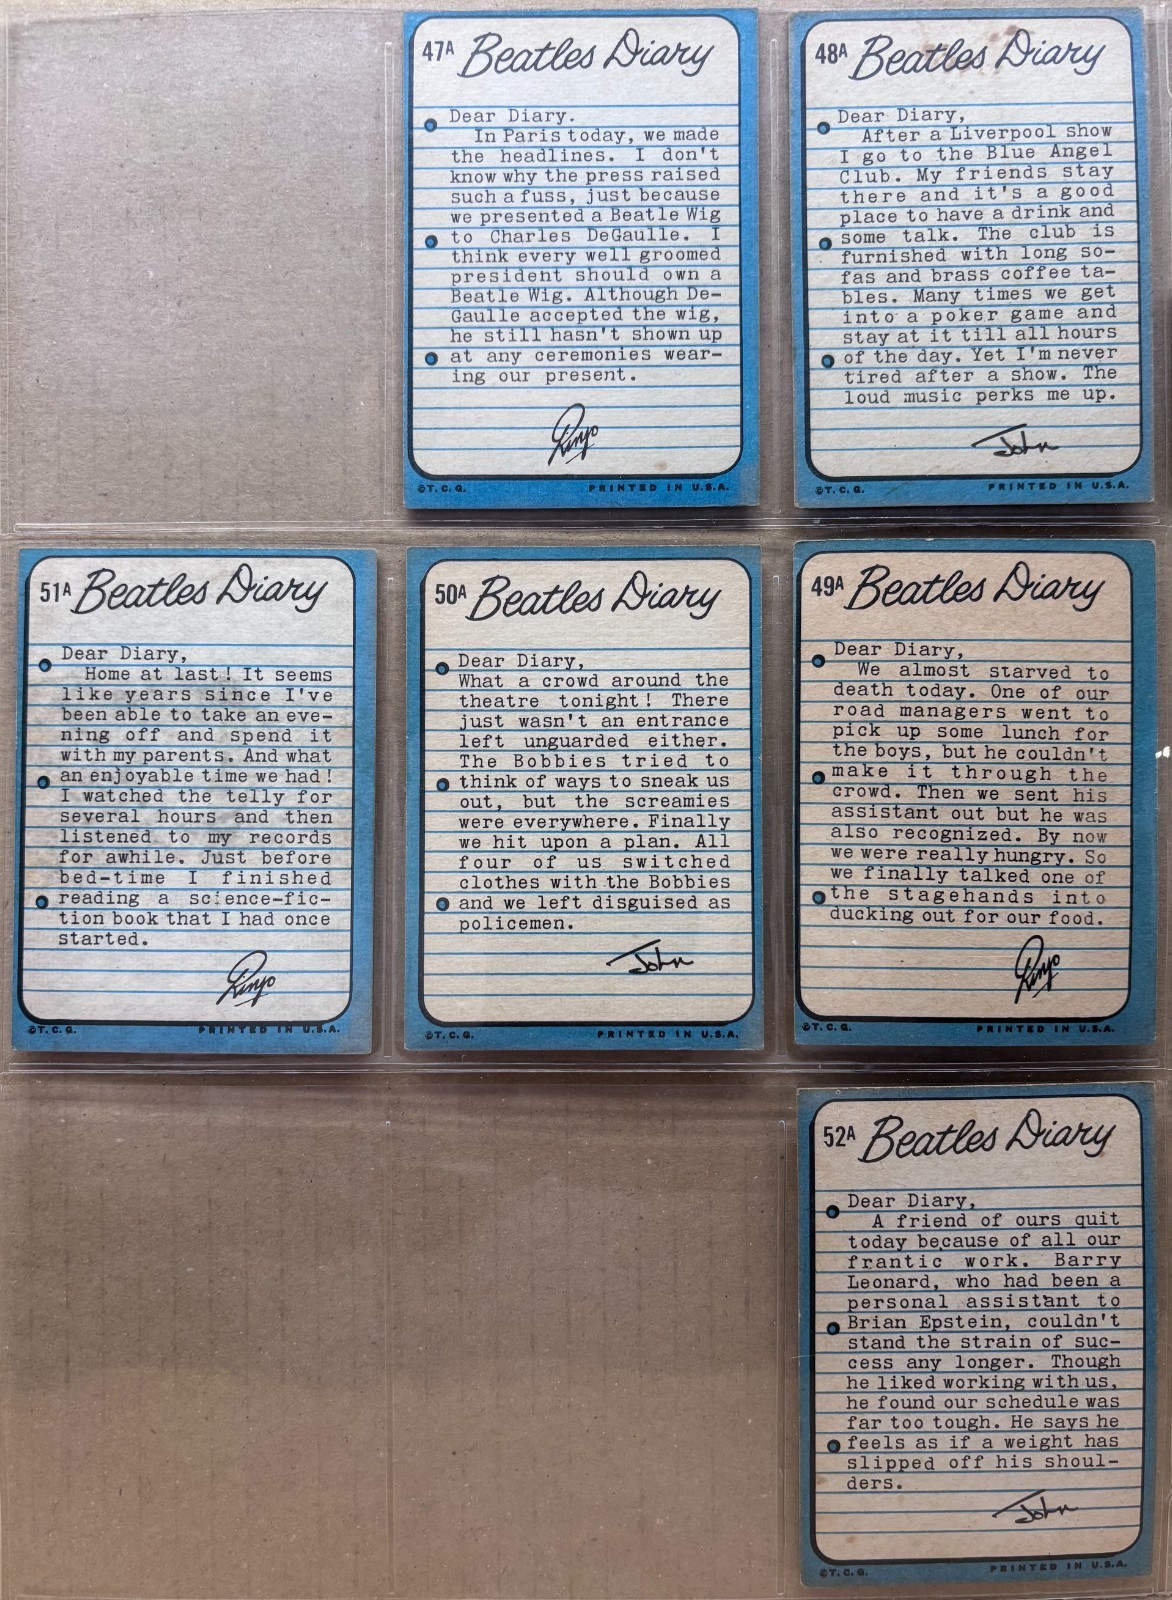 47A Beatles Diary
Dear Diary.
In Paris today, we made
the headlines. I don't
know why the press raised
such a fuss, just because
we presented a Beatle Wig
to Charles DeGaulle. I
think every well groomed
president should own a
Beatle Wig. Although De-
Gaulle accepted the wig,
he still hasn't shown up
at any ceremonies wear-
ing our present.
Ringo
©T.C.G. PRINTED IN U.S.A.
48A Beatles Diary
Dear Diary,
After a Liverpool show
I go to the Blue Angel
Club. My friends stay
there and it's a good
place to have a drink and
some talk. The club is
furnished with long so-
fas and brass coffee ta-
bles. Many times we get
into a poker game and
stay at it till all hours
of the day. Yet I'm never
tired after a show. The
loud music perks me up.
John
©T.C.G. PRINTED IN U.S.A.
51A Beatles Diary
Dear Diary,
Home at last! It seems
like years since I've
been able to take an eve-
ning off and spend it
with my parents. And what
an enjoyable time we had!
I watched the telly for
several hours and then
listened to my records
for awhile. Just before
bed-time I finished
reading a science-fic-
tion book that I had once
started.
Ringo
©T.C.G. PRINTED IN U.S.A.
50A Beatles Diary
Dear Diary,
What a crowd around the
theatre tonight! There
just wasn't an entrance
left unguarded either.
The Bobbies tried to
think of ways to sneak us
out, but the screamies
were everywhere. Finally
we hit upon a plan. All
four of us switched
clothes with the Bobbies
and we left disguised as
policemen.
John
©T.C.G. PRINTED IN U.S.A.
49A Beatles Diary
Dear Diary,
We almost starved to
death today. One of our
road managers went to
pick up some lunch for
the boys, but he couldn't
make it through the
crowd. Then we sent his
assistant out but he was
also recognized. By now
we were really hungry. So
we finally talked one of
the stagehands into
ducking out for our food.
Ringo
©T.C.G. PRINTED IN U.S.A.
52A Beatles Diary
Dear Diary,
A friend of ours quit
today because of all our
frantic work. Barry
Leonard, who had been a
personal assistant to
Brian Epstein, couldn't
stand the strain of suc-
cess any longer. Though
he liked working with us,
he found our schedule was
far too tough. He says he
feels as if a weight has
slipped off his shoul-
ders.
John
©T.C.G. PRINTED IN U.S.A.